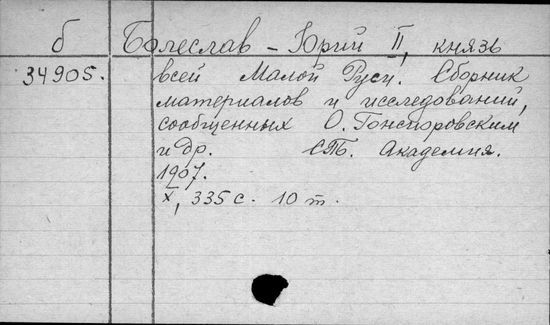 б Болеслав - Юрий II, князь
34905. всей Малой Руси. Сборник
материалов и исследований,
сообщенных О. Гонсиоровским
и др. СПб. Академия.
1907.
X, 335 с. 10 т.